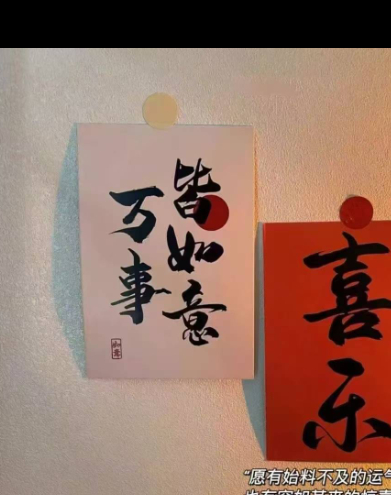 万事
皆如意
如意
喜乐
“愿有始料不及的运气